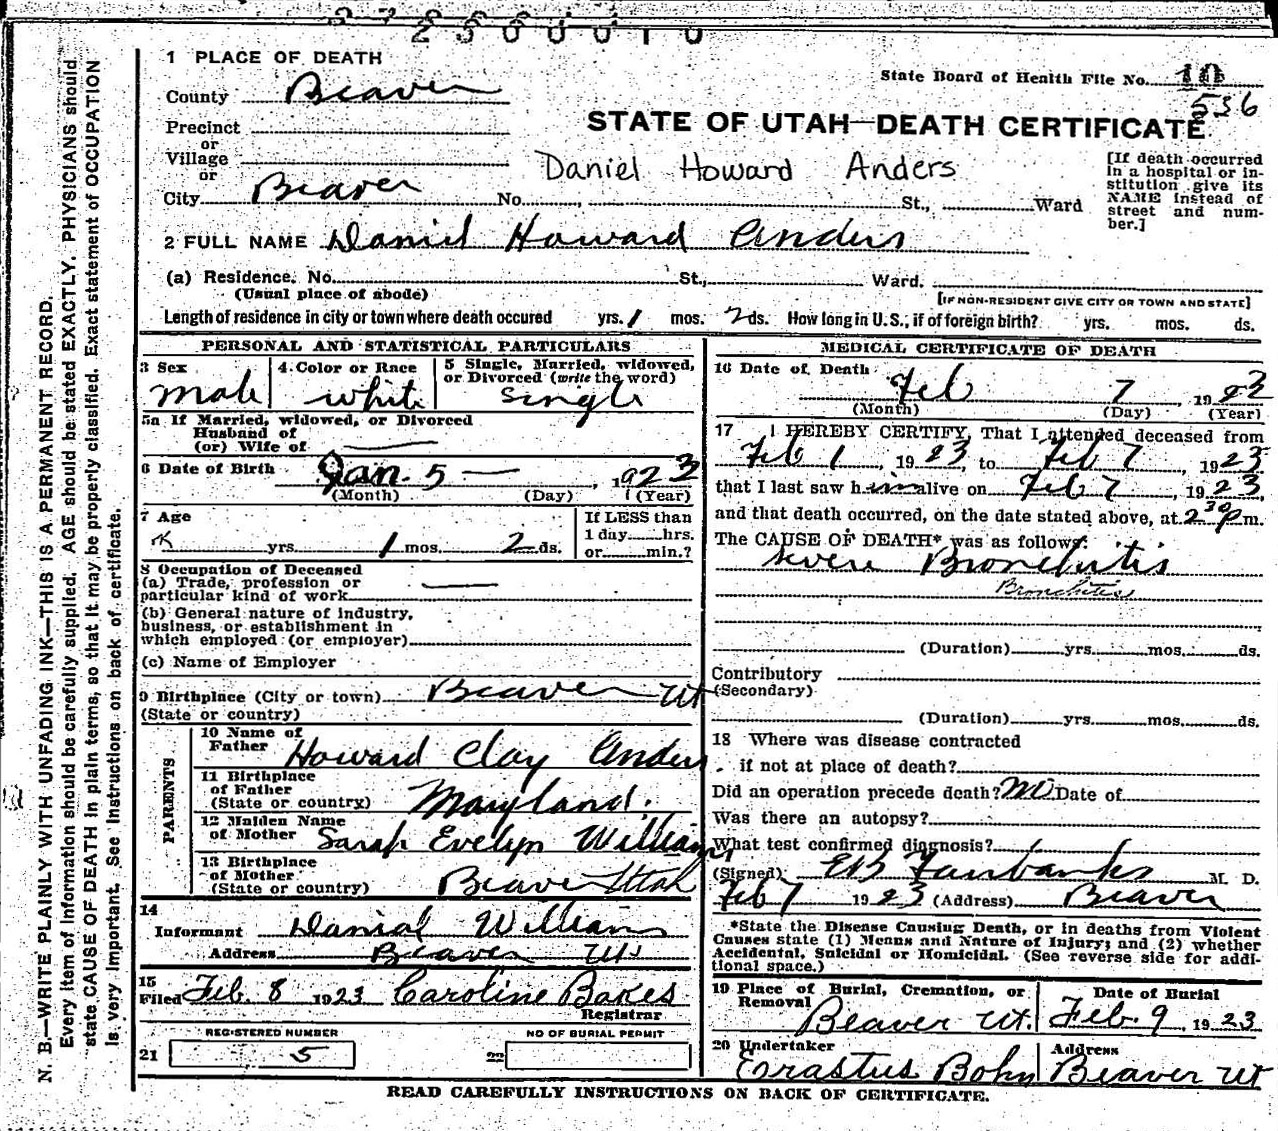 2 3 6 0 0 1 0
1 PLACE OF DEATH
State Board of Health File No. 10
County Beaver
536
STATE OF UTAH—DEATH CERTIFICATE
Precinct
or
Village
or
Daniel Howard Anders
[If death occurred in a hospital or institution give its NAME instead of street and number.]
City Beaver No. , St., Ward
2 FULL NAME Daniel Howard Anders
(a) Residence. No. St., Ward.
(Usual place of abode)
[IF NON-RESIDENT GIVE CITY OR TOWN AND STATE]
Length of residence in city or town where death occured yrs. 1 mos. 2 ds. How long in U. S., if of foreign birth? yrs. mos. ds.
PERSONAL AND STATISTICAL PARTICULARS
3 Sex 4 Color or Race 5 Single, Married, widowed,
or Divorced (write the word)
male white single
5a If Married, widowed, or Divorced
Husband of
(or) Wife of
6 Date of Birth Jan. 5 — , 1923
(Month) (Day) (Year)
7 Age If LESS than
1 day hrs.
or min.?
yrs. 1 mos. 2 ds.
8 Occupation of Deceased
(a) Trade, profession or
particular kind of work
(b) General nature of industry,
business, or establishment in
which employed (or employer)
(c) Name of Employer
9 Birthplace (City or town) Beaver Ut
(State or country)
PARENTS
10 Name of
Father Howard Clay Anders
11 Birthplace
of Father
(State or country) Maryland.
12 Maiden Name
of Mother Sarah Evelyn Williams
13 Birthplace
of Mother
(State or country) Beaver Utah
14
Informant Danial Williams
Address Beaver Ut
15
Filed Feb. 8 1923 Caroline Bakes
Registrar
REGISTERED NUMBER NO OF BURIAL PERMIT
21 5 22
MEDICAL CERTIFICATE OF DEATH
16 Date of Death
Feb 7 1923
(Month) (Day) (Year)
17 I HEREBY CERTIFY, That I attended deceased from
Feb 1, 1923, to Feb 7, 1923
that I last saw him alive on Feb 7, 1923,
and that death occurred, on the date stated above, at 2 30 p m.
The CAUSE OF DEATH* was as follows:
severe Bronchitis
Bronchitis
(Duration) yrs. mos. ds.
Contributory
(Secondary)
(Duration) yrs. mos. ds.
18 Where was disease contracted
if not at place of death?
Did an operation precede death? no Date of
Was there an autopsy?
What test confirmed diagnosis?
(Signed) Fairbanks M. D.
Feb 7 1923 (Address) Beaver
*State the Disease Causing Death, or in deaths from Violent
Causes state (1) Means and Nature of Injury; and (2) whether
Accidental, Suicidal or Homicidal. (See reverse side for addi-
tional space.)
19 Place of Burial, Cremation, or
Removal
Date of Burial
Beaver Ut. Feb. 9, 1923
20 Undertaker Address
Erastus Bohn Beaver Ut
READ CAREFULLY INSTRUCTIONS ON BACK OF CERTIFICATE.
N. B.—WRITE PLAINLY WITH UNFADING INK—THIS IS A PERMANENT RECORD.
Every item of information should be carefully supplied. AGE should be stated EXACTLY. PHYSICIANS should
state CAUSE OF DEATH in plain terms, so that it may be properly classified. Exact statement of OCCUPATION
is very important. See instructions on back of certificate.